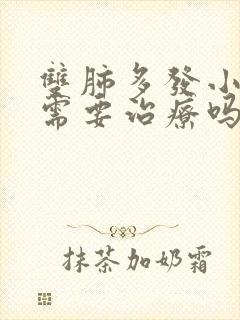 雙肺多發小
需要治療嗎
抹茶加奶霜